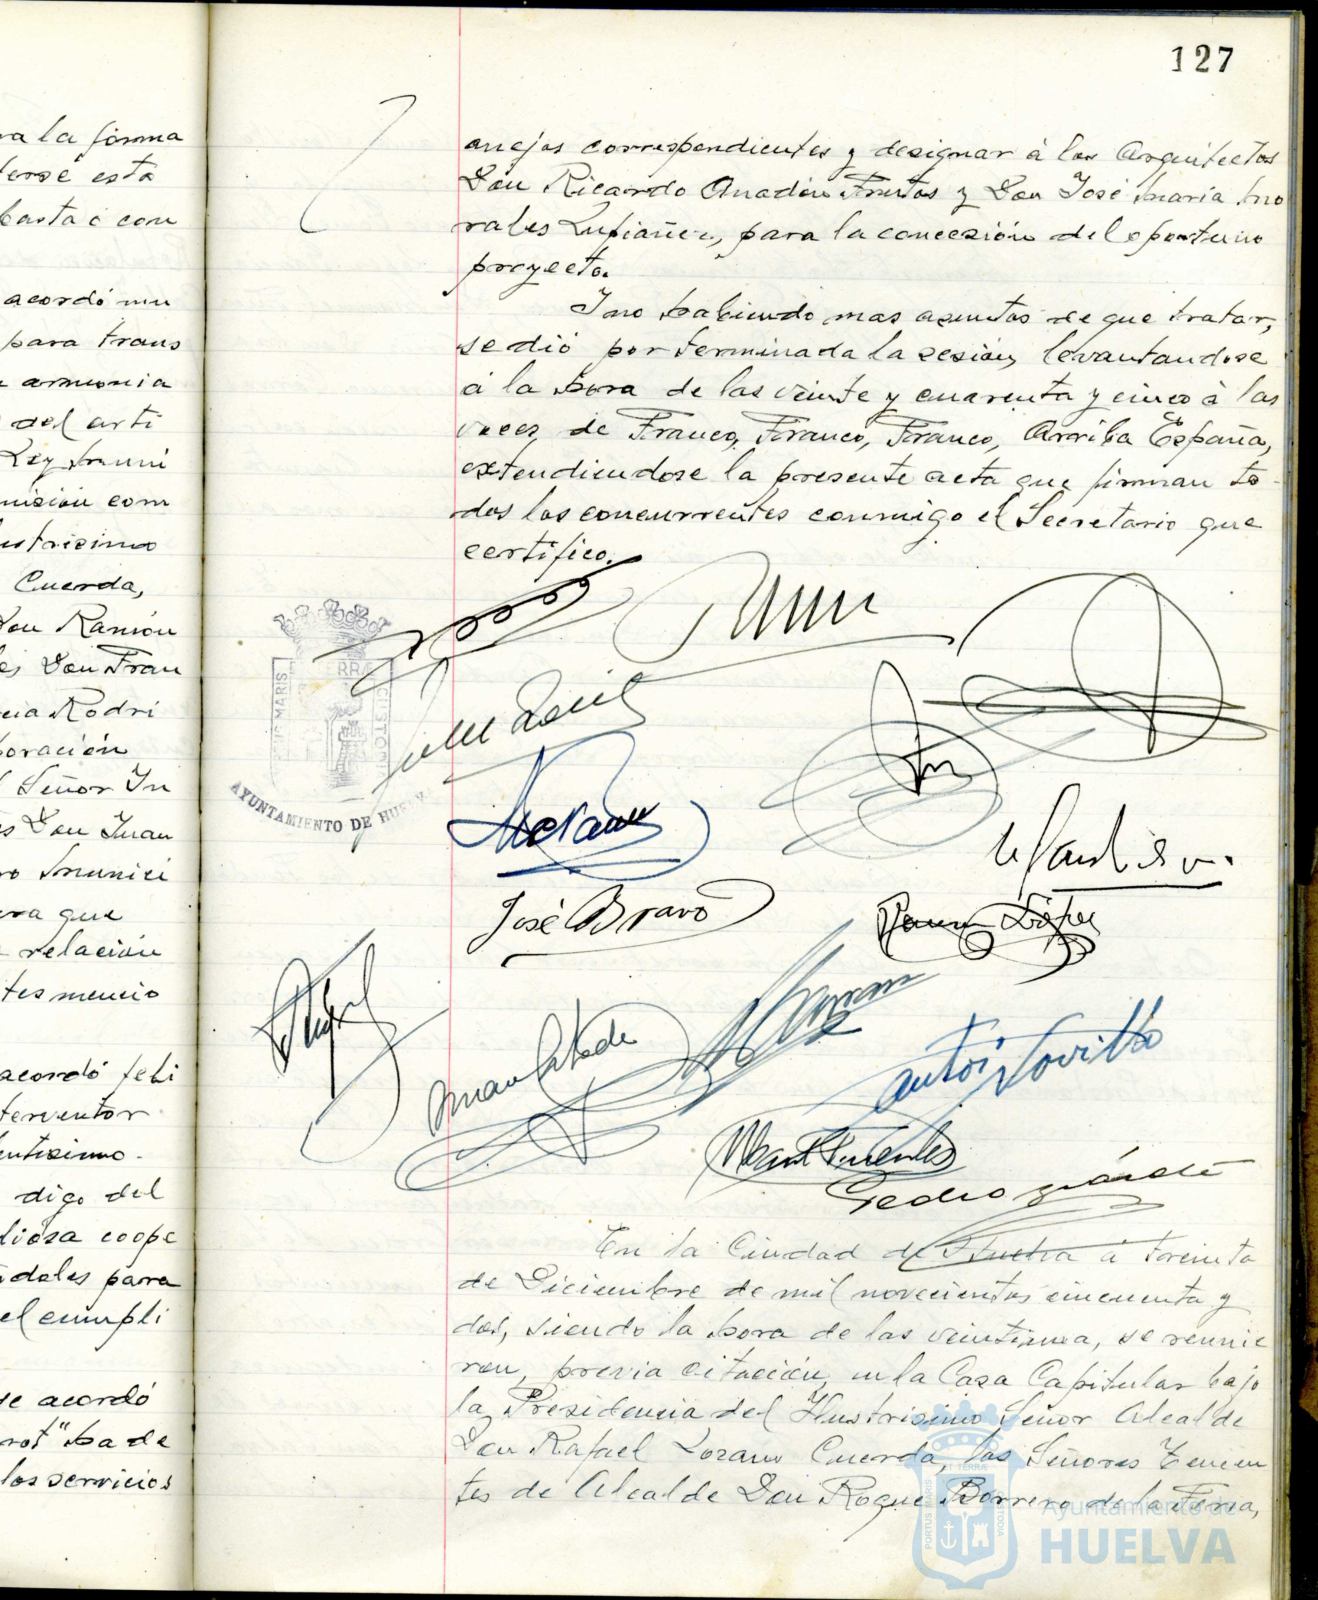 127
ra la forma
terse esta
basta ó con
acordó mu
para trans
armonia
del arti
Ley Muni
misión com
ustrisimo
Cuerda,
Don Ramón
es Don Fran
cia Rodri
poración
Señor In
s Don Juan
ro Munici
era que
relación
tes mencio
acordó feli
terventor
entisimo.
digo del
liosa coope
dales para
el cumpli
se acordó
rot" ha de
los servicios
anejos correspondientes y designar á los Arquitectos
Don Ricardo Anadón Frutos y Don José Maria Mo
rales Lupiañez, para la concesión del oportuno
proyecto.
Y no habiendo mas asuntos de que tratar,
se dió por terminada la sesión, levantandose
á la hora de las veinte y cuarenta y cinco á las
voces de Franco, Franco, Franco, Arriba España,
extendiendose la presente acta que firman to
dos los concurrentes conmigo el Secretario que
certifico.
PORTUS MARIS ET TERRAE CUSTODIA
AYUNTAMIENTO DE HUELVA
José Bravo
Ramon López
Antonio Jovitto
Manl Fuentes
Pedro
En la Ciudad de Huelva á treinta
de Diciembre de mil novecientos cincuenta y
dos, siendo la hora de las veintiuna, se reunie
ron, previa citación, en la Casa Capitular bajo
la Presidencia del Ilustrisimo Señor Alcalde
Don Rafael Lozano Cuerda, los Señores Tenien
tes de Alcalde Don Roque Borrero de la Feria,
Ayuntamiento de
HUELVA